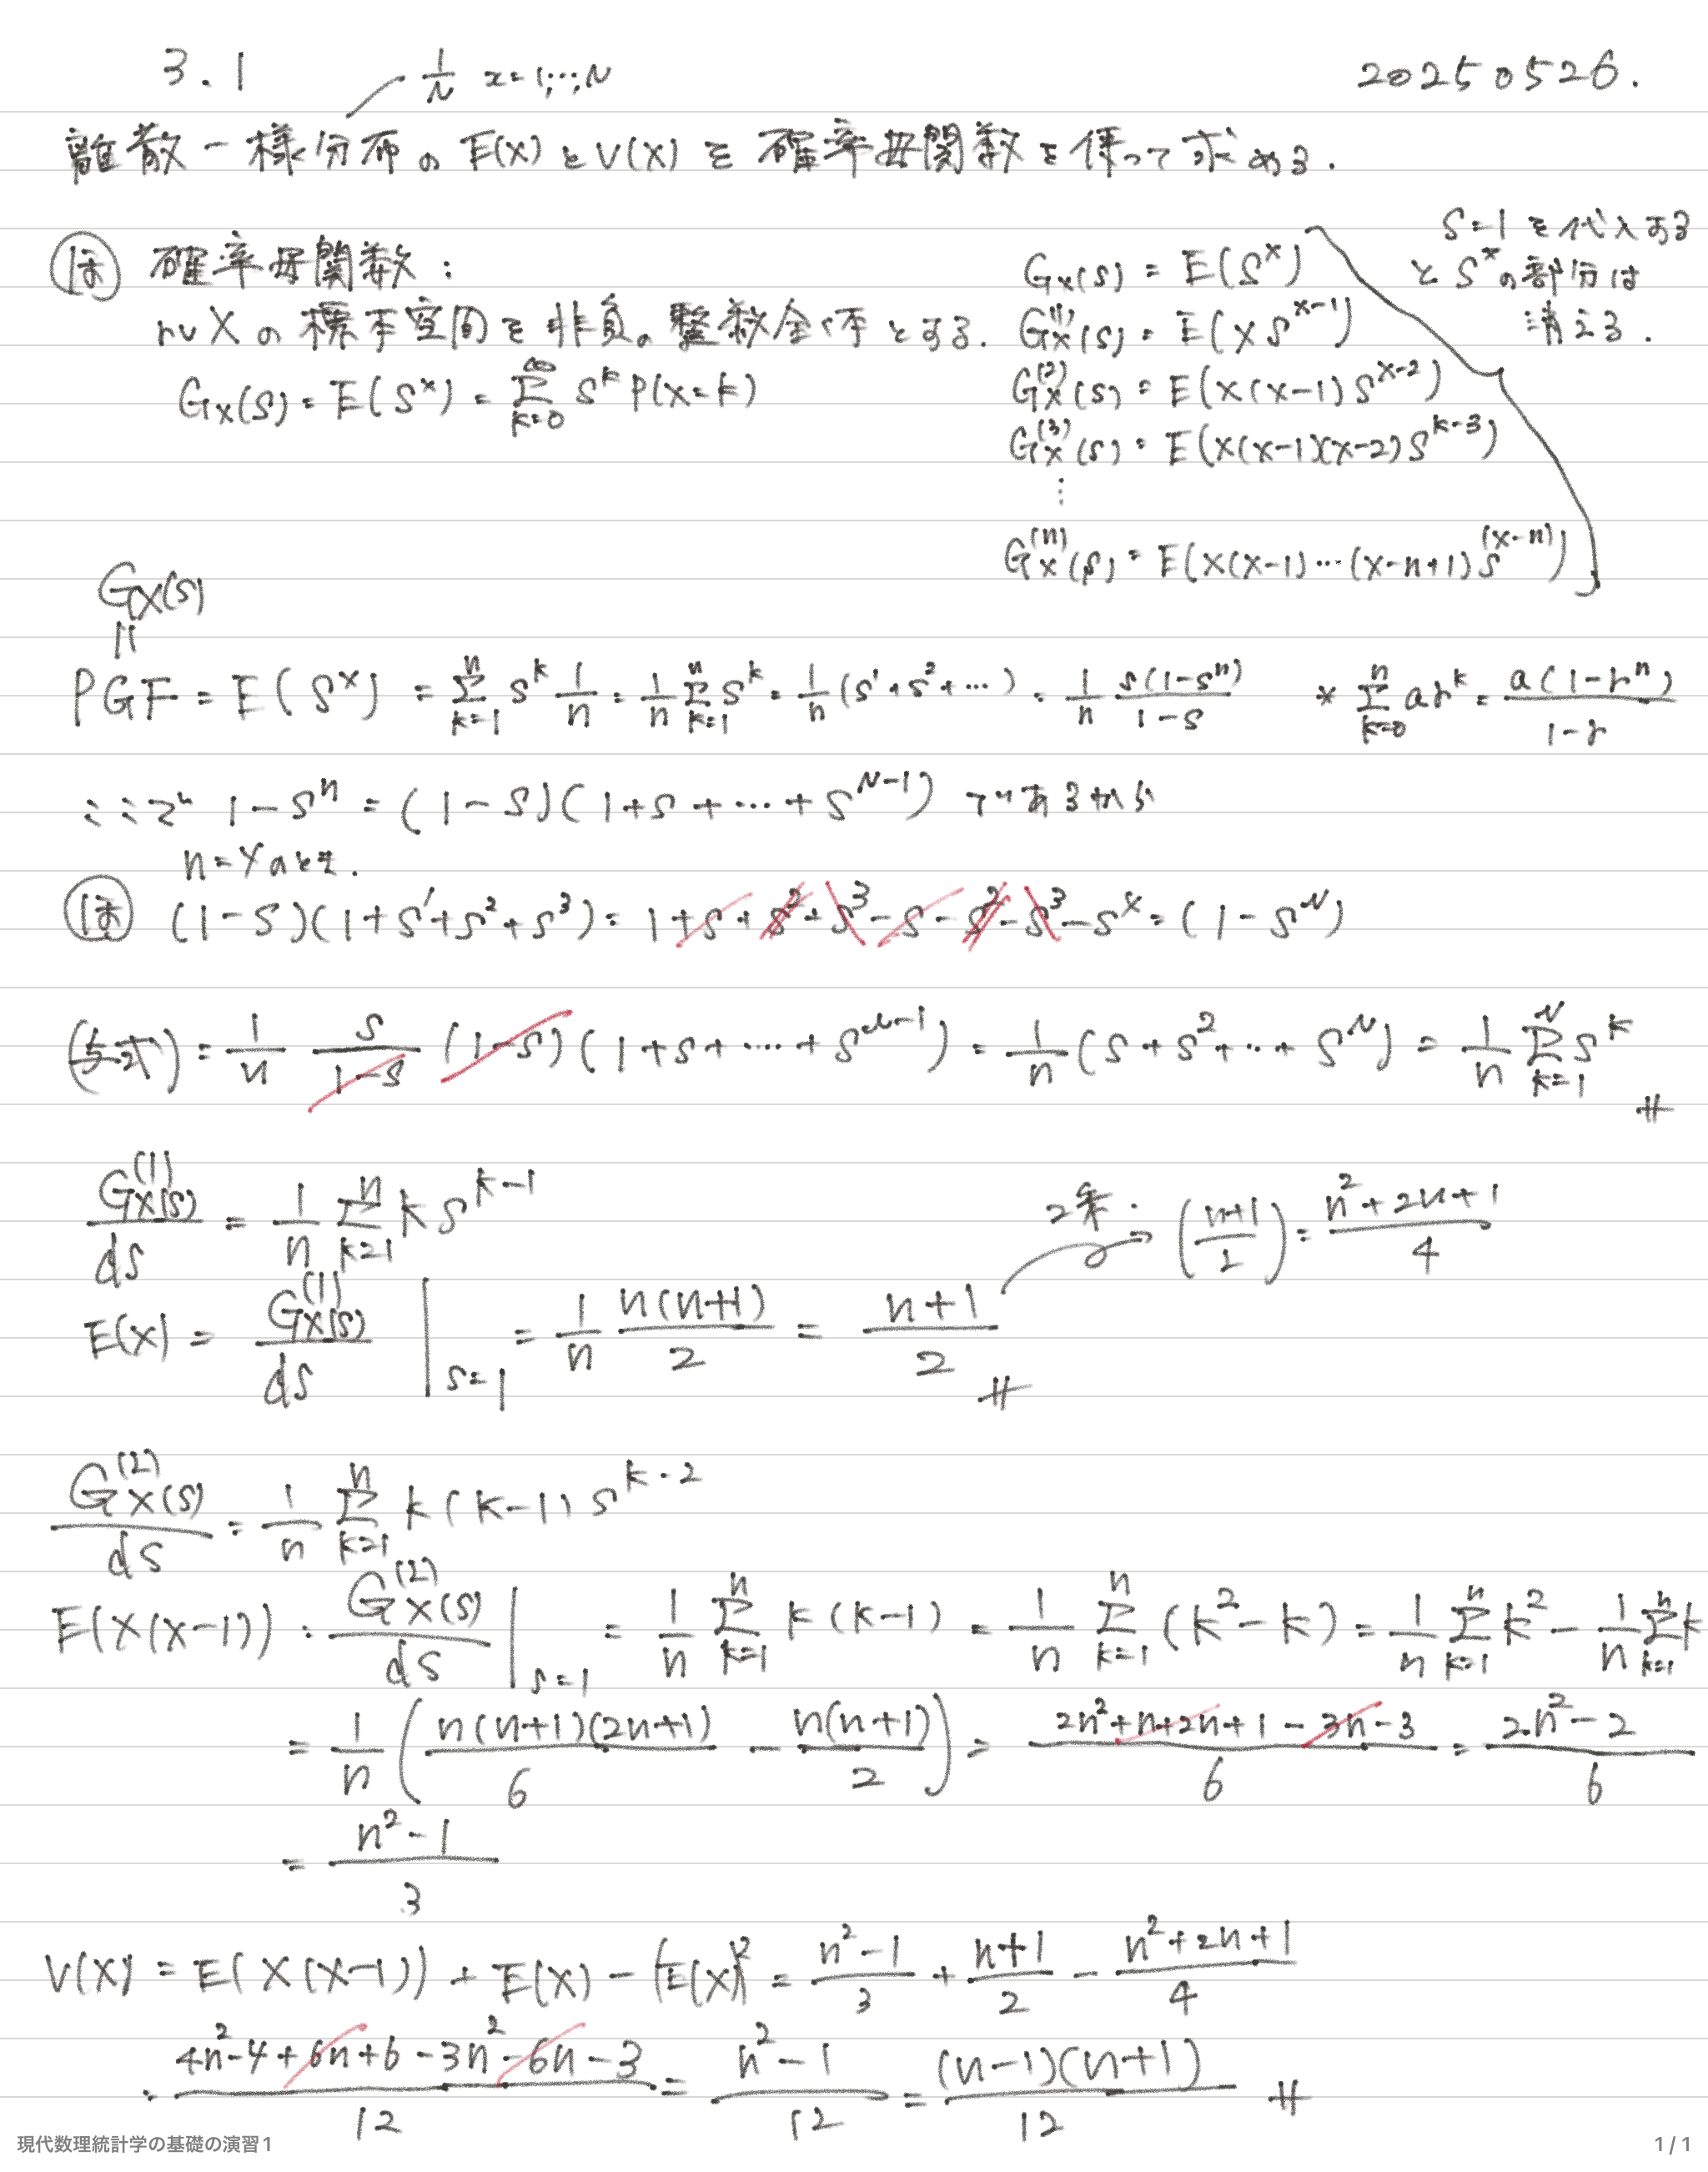 3.1
1/N x=1,…,N
20250526.
離散一様分布の E(X)とV(X) を 確率母関数を使って求める.
(ほ) 確率母関数:
rv X の標本空間を非負の整数全体とする.
G_X(s) = E(s^x) = Σ_{k=0}^{∞} s^k P(X=k)
G_X(s) = E(s^x)
G_X^{(1)}(s) = E(x s^{x-1})
G_X^{(2)}(s) = E(x(x-1) s^{x-2})
G_X^{(3)}(s) = E(x(x-1)(x-2) s^{k-3})
⋮
G_X^{(n)}(s) = E(x(x-1)…(x-n+1) s^{(x-n)})
s=1 を代入する
と s^x の部分は
消える.
G_X(s)
||
PGF = E(s^x) = Σ_{k=1}^{n} s^k 1/n = 1/n Σ_{k=1}^{n} s^k = 1/n (s' + s^2 + …) = 1/n s(1-s^n)/(1-s)
* Σ_{k=0}^{n} ar^k = a(1-r^n)/(1-r)
ここで 1-s^n = (1-s)(1+s+…+s^{N-1}) であるから
n=4のとき.
(ほ) (1-s)(1+s'+s^2+s^3) = 1+s+s^2+s^3-s-s^2-s^3-s^x = (1-s^N)
(与式) = 1/n s/(1-s) (1-s)(1+s+….+s^{n-1}) = 1/n (s+s^2+…+s^N) = 1/n Σ_{k=1}^{N} s^k #
G_X^{(1)}(s)/ds = 1/n Σ_{k=1}^{n} k s^{k-1}
2乗. → ((n+1)/2) = (n^2+2n+1)/4
E(X) = G_X^{(1)}(s)/ds |_{s=1} = 1/n n(n+1)/2 = (n+1)/2 #
G_X^{(2)}(s)/ds = 1/n Σ_{k=1}^{n} k(k-1) s^{k-2}
E(X(X-1)) = G_X^{(2)}(s)/ds |_{s=1} = 1/n Σ_{k=1}^{n} k(k-1) = 1/n Σ_{k=1}^{n} (k^2-k) = 1/n Σ_{k=1}^{n} k^2 - 1/n Σ_{k=1}^{n} k
= 1/n ( n(n+1)(2n+1)/6 - n(n+1)/2 ) = (2n^2+n+2n+1-3n-3)/6 = (2n^2-2)/6
= (n^2-1)/3
V(X) = E(X(X-1)) + E(X) - (E(X))^2 = (n^2-1)/3 + (n+1)/2 - (n^2+2n+1)/4
= (4n^2-4+6n+6-3n^2-6n-3)/12 = (n^2-1)/12 = (n-1)(n+1)/12 #
現代数理統計学の基礎の演習1
1 / 1